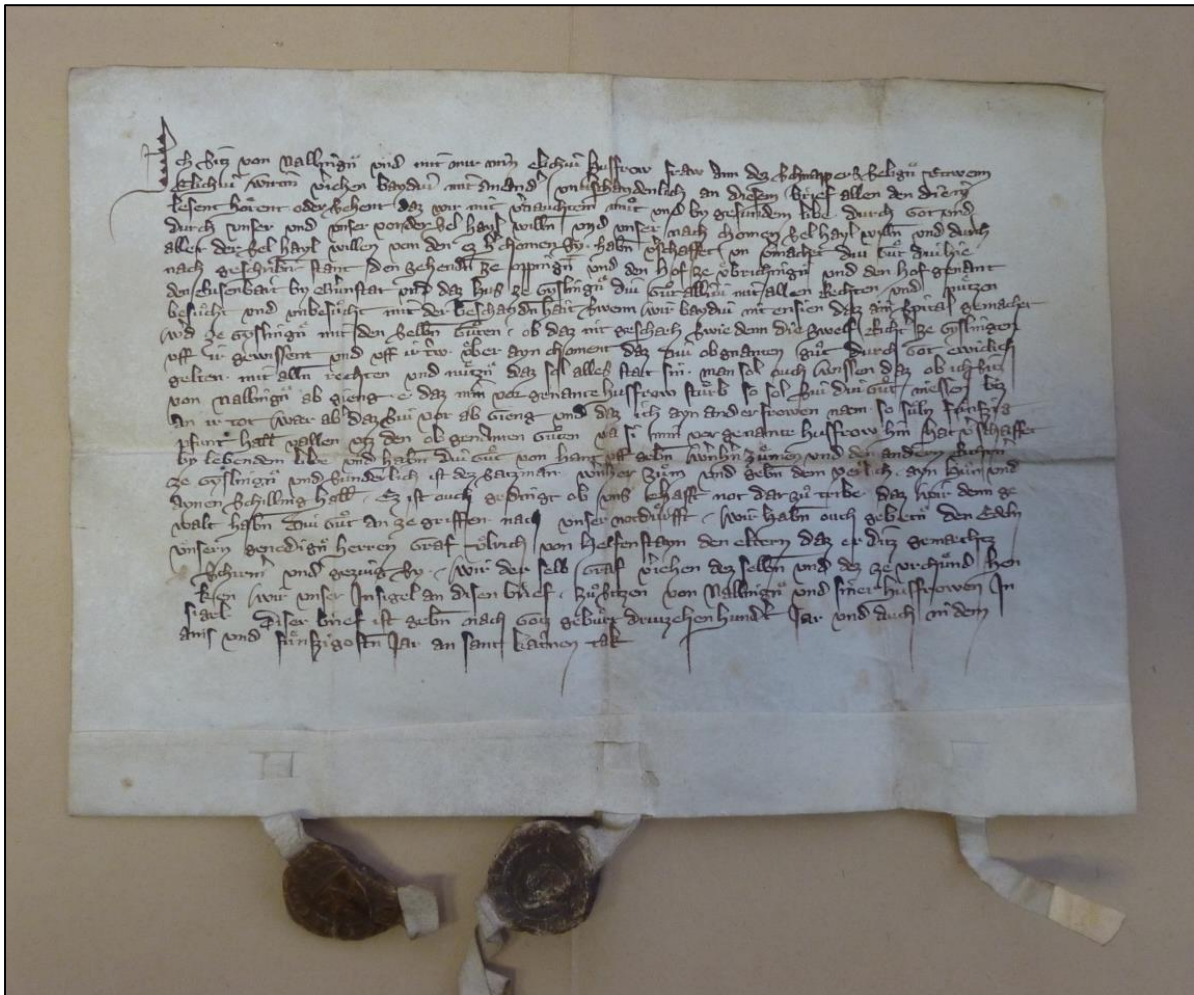 Ich Sitz von Nallingñ und mit mir min elichiu husfrow fraw ann dez Schnappers seligñ
Elichiu veriehen baydiu mit anand unverschaydenlich an disem brief allen den die in
lesent hörent oder sehent daz wir mit veruachtem muͦt und by gesundem libe durch got und
durch unser und unser vorder sel hayl willn und unser nach chomen sel hayl willn und durch
aller der sel hayl willen von den ez her chomen sy habn verschaffet un vermachet diu guͦt diu hie
nach geschribn stant den zehendn ze oppingñ und den hof ze und den hof genant
den by und daz hus ze gyslingñ diu guͦt alliu mit allen Rechten und nützen
besuͦcht und unbesuͦcht mit der beschaydnhait Swenn wir baydiu nit ersien daz ain Spital gemachet
wrd ze gyslingñ mit den selbn guͦten ob daz nit geschach Swie denn die zwelf Richter ze gyslingen
uff ir gewissent und uff ir triw uber ayn choment daz diu obgnanten guͦt durch Got ewiclich
gelten mit alln rechten und nützñ daz sol alles stat sin man sol ouch wissen daz ob ich Sitz
von Nallingñ ab gieng e daz min vor genante husfrow sturb so sol Siu diu guͦt niessen bez
an ir tot wär ab daz Siu vor ab gieng und daz ich ayn ander frowen nam so süln fünfzig
pfunt hall vallen uz den ob genanten guͦten min vor genante husfrow hin hat verschaffet
by lebendem libe und habn diu guͦt von hant uff gebn und den andern Richtern
ze gyslingñ und sunderlich ist dez Salzman und gebn dem ayn huͦn und
aynen Schilling hall Ez ist ouch gedingt ob uns ehafft not dar zuͦ tribe daz wir denn ge
walt habn diu guͦt an ze griffen nach unser notdurfft wir habn ouch gebetñ den Edeln
unsern genedigñ herren Graf uͦlrich von Helfenstayn den eltern daz er ditz gemachtz
Schirm und gezüg sy wir der selb Graf veriehen dez selbn und dez ze urchund hen
ken wir unser Insigel an disen brief zuͦ Sitzen von Nallingñ und siner husfrowen In
sigel Diser brief ist gebn nach Gotz gebürt driuzehen hundert Jar und dar nach in dem
ains und fünfzigostñ Jar an sant katrinen tak